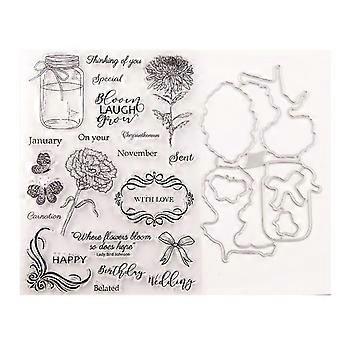 Thinking of you
Special
Bloom
LAUGH
Grow
January
On your
Chrysanthemum
November
Sent
Carnation
WITH LOVE
"Where flowers bloom
so does hope"
Lady Bird Johnson
HAPPY
Birthday
Wedding
Belated